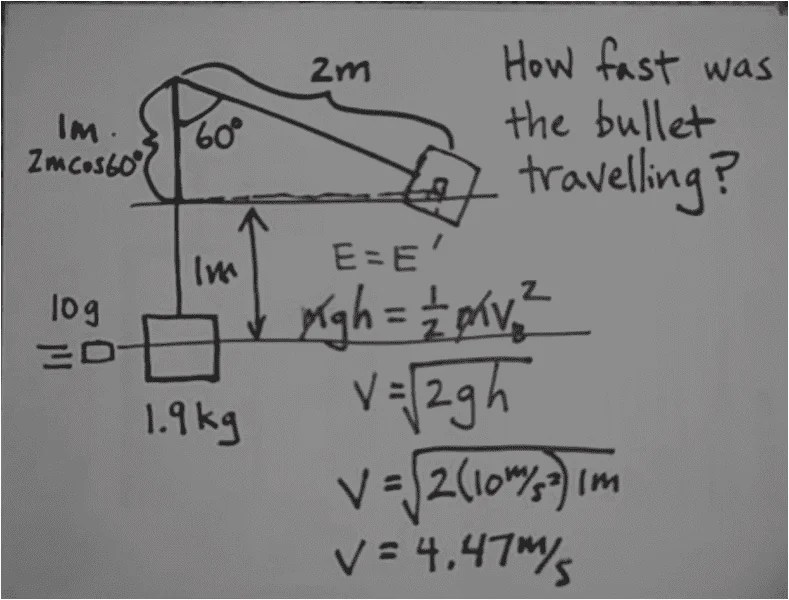 How fast was
the bullet
travelling?
2m
1m.
2mcos60°
60°
1m
10g
1.9kg
E = E'
mgh = 1/2 mv_B^2
V = √2gh
V = √2(10 m/s²) 1m
V = 4.47 m/s